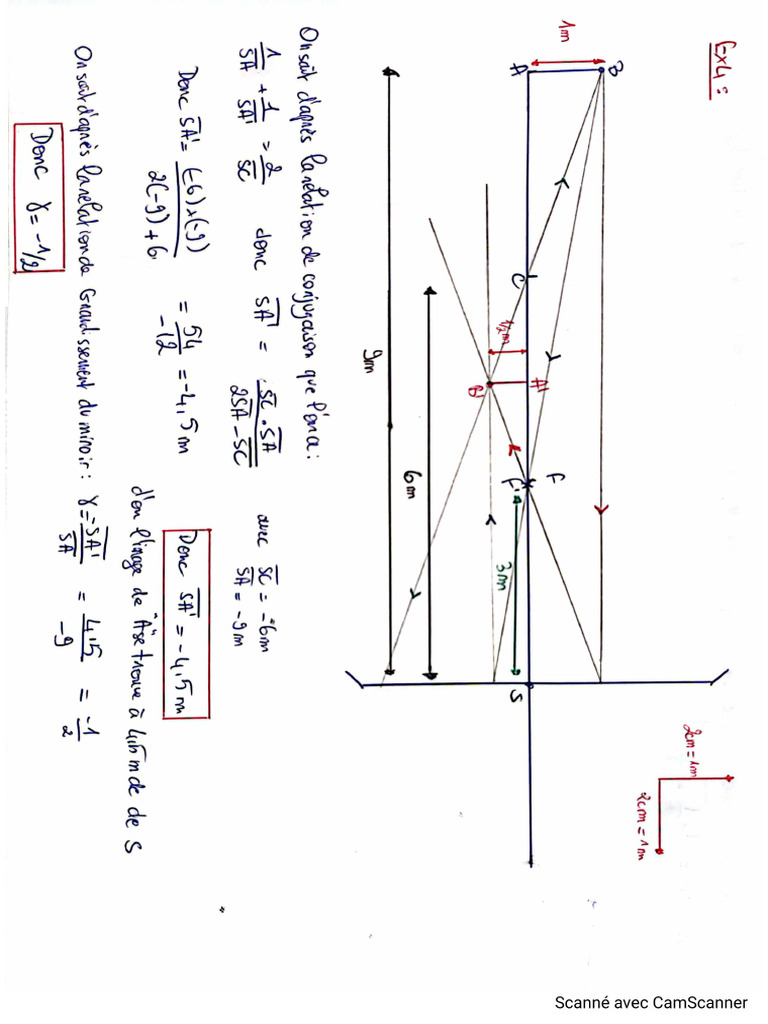 Ex4 :
2cm = 1m
2cm = 1m
1m
B
A
C
1/2m
A'
B'
F
F'
3m
S
6m
9m
On sait d'après la relation de conjugaison que l'on a :
1/SA + 1/SA' = 2/SC donc SA' = SC . SA / 2SA - SC avec SC = -6m
SA = -9m
Donc SA' = (-6)x(-9) / 2(-9)+6 = 54/-12 = -4,5 m
Donc SA' = -4,5 m
d'ou l'image de "A" se trouve à 4,5 m de de S
On sait d'après la relation de Grandissement du miroir : γ = -SA'/SA = 4,5/-9 = -1/2
Donc γ = -1/2
Scanné avec CamScanner